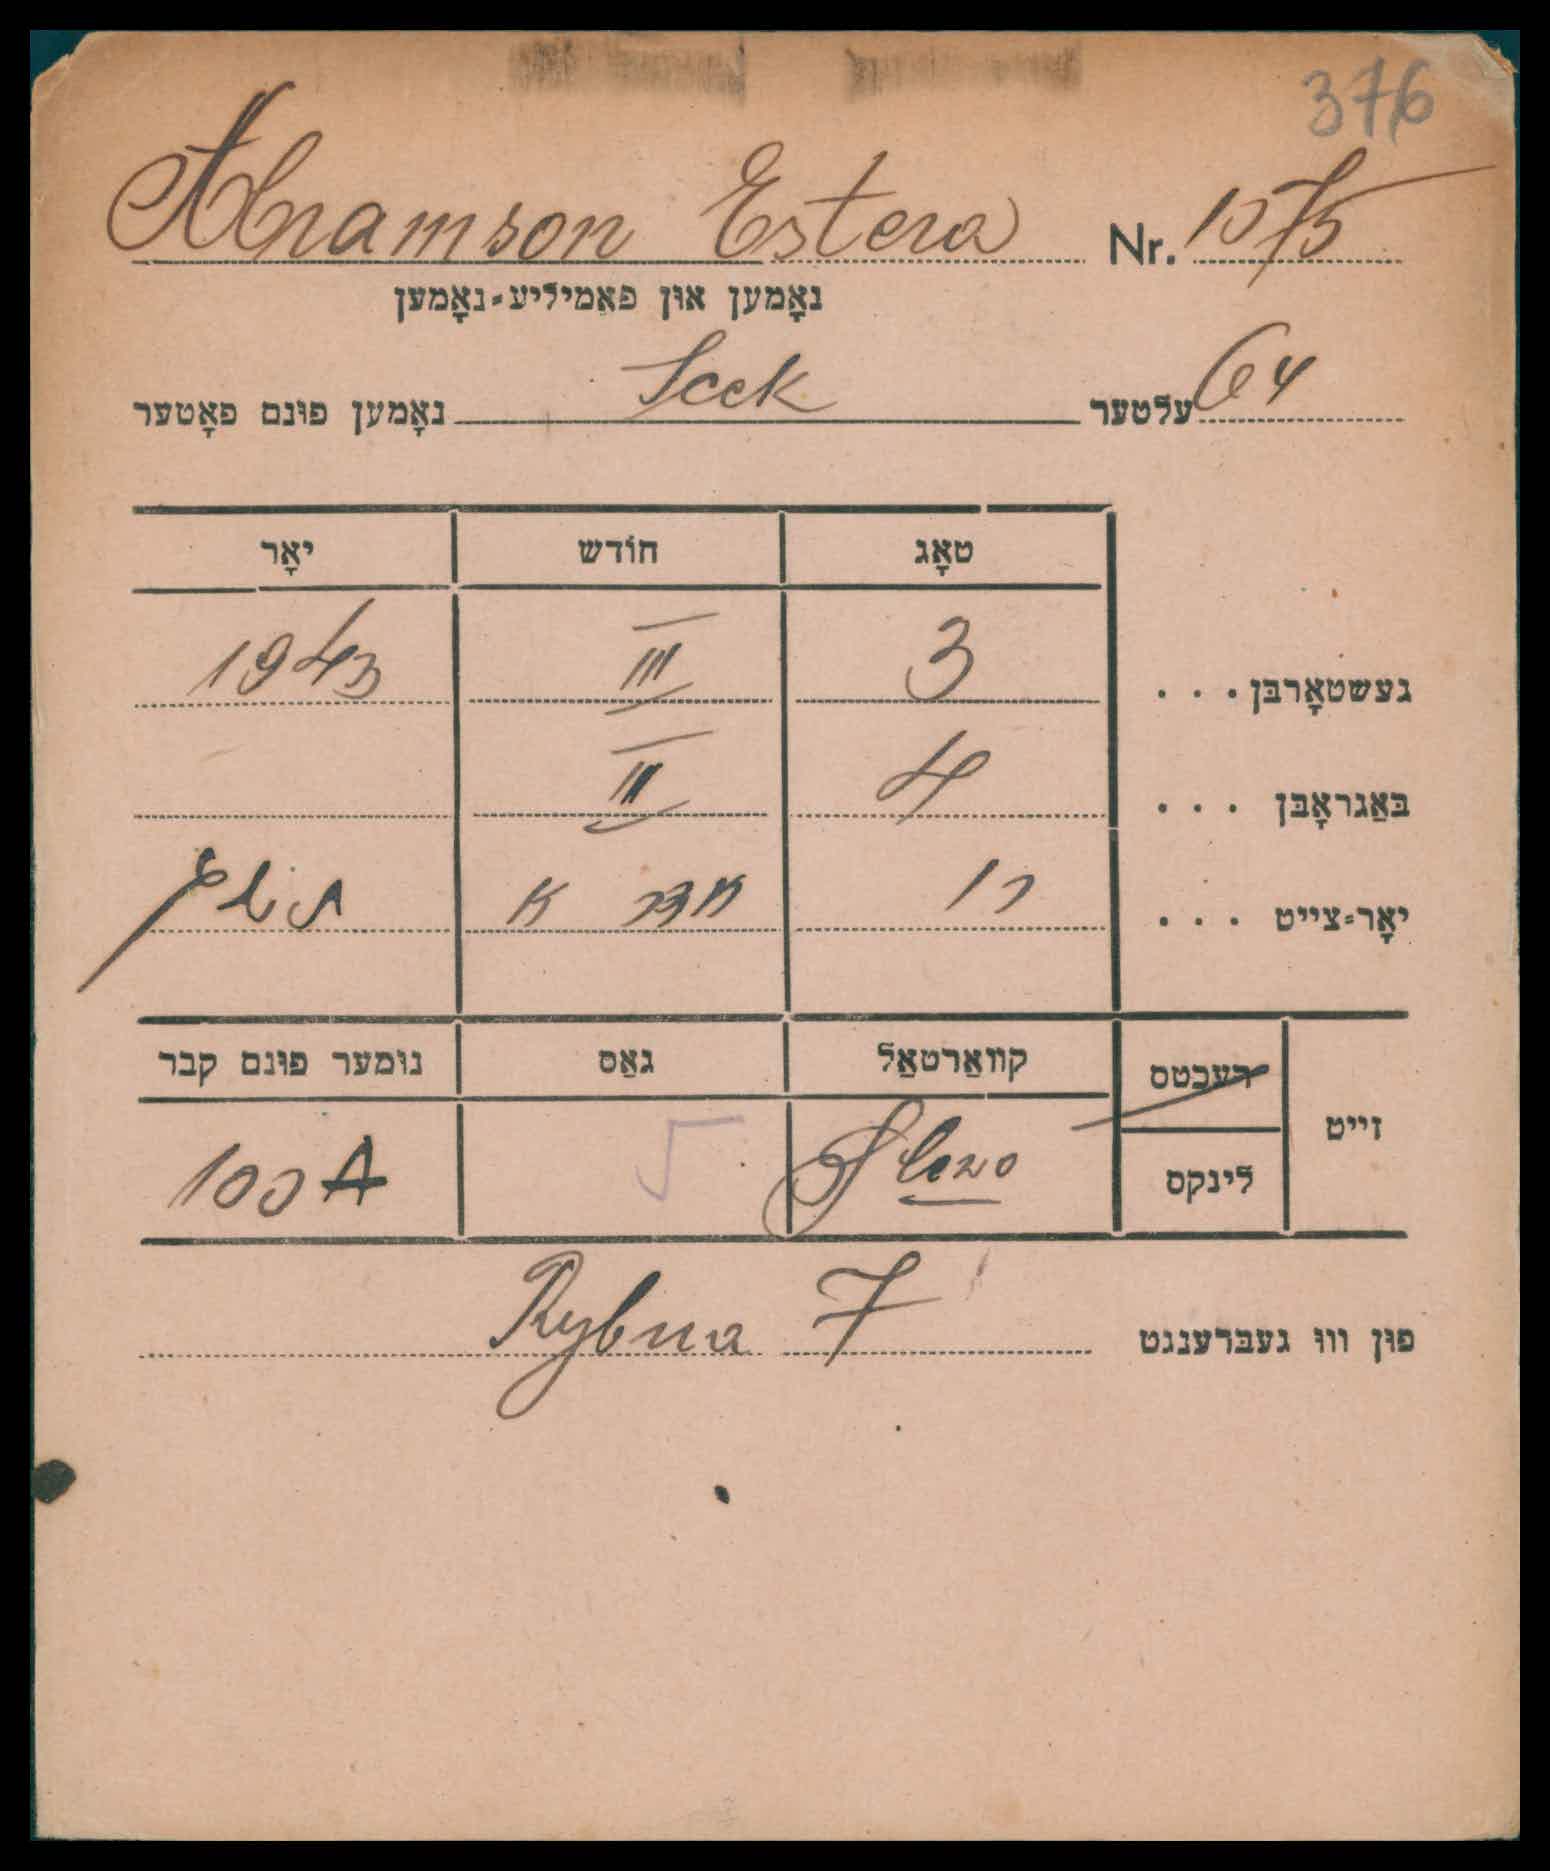 376
Abramson Estera Nr. 1075
נאָמען און פאַמיליע-נאָמען
נאָמען פונם פאָטער Icek עלטער 64
טאָג חודש יאָר
געשטאָרבן . . . 3 III 1943
באַגראָבן . . . 4 III
יאָר-צייט . . . אדר א תש״ג
זייט רעכטס קוואַרטאַל גאַס נומער פונם קבר
לינקס P lewo 100 A
פון וווּ געברענגט Rybna 7